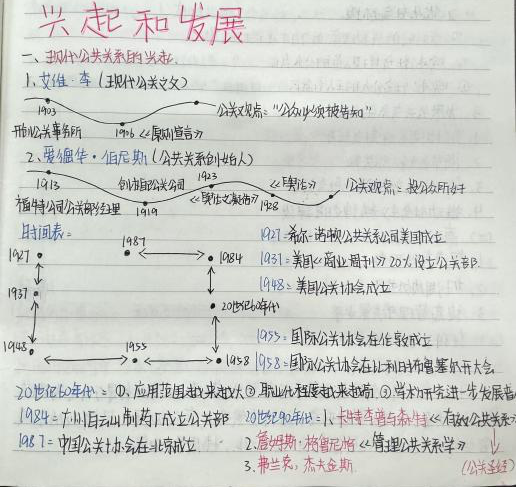 兴起和发展
一、现代公共关系的兴起
1、艾维·李(现代公关之父)
1903 公关观点:"公众必须被告知"
开创公关事务所 1906 《原则宣言》
2、爱德华·伯尼斯(公共关系创始人)
1913 创办自己公关公司 1923 《舆论》 公关观点:投公众所好
福特公司公关部经理 1919 《舆论之凝结》 1928
时间表:
1927 1987 1984
1937 20世纪60年代
1948 1955 1958
1927=希尔-诺顿公共关系公司美国成立
1937=美国《商业周刊》20%设立公关部
1948=美国公关协会成立
1955=国际公关协会在伦敦成立
1958=国际公关协会在比利时布鲁塞尔开大会
20世纪60年代=①、应用范围越来越大②职业化程度越来越高③学术研究进一步发展
1984=广州白云山制药厂成立公关部
1987=中国公关协会在北京成立
20世纪90年代=1、卡特李普与森特《有效公共关系》
2.詹姆斯·格鲁尼格《管理公共关系学》
3.弗兰克,杰夫金斯
(公关圣经)